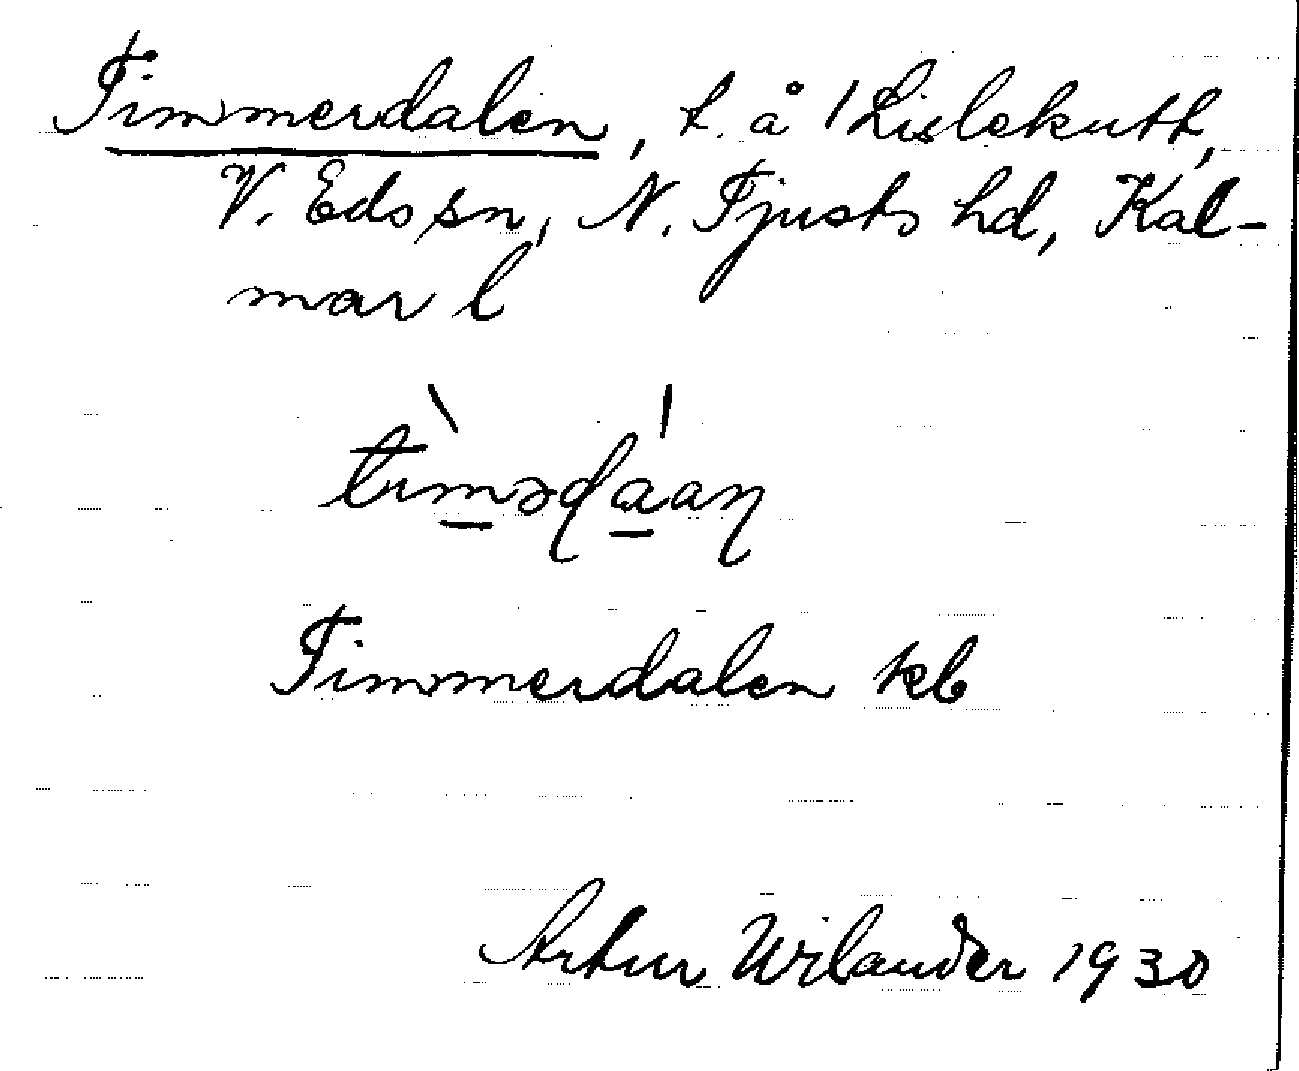 Timmerdalen, t. å 1 Lislekutt,
V. Eds sn, N. Tjusts hd, Kal-
mar l
tìmədáan
Timmerdalen kb
Artur Wilander 1930